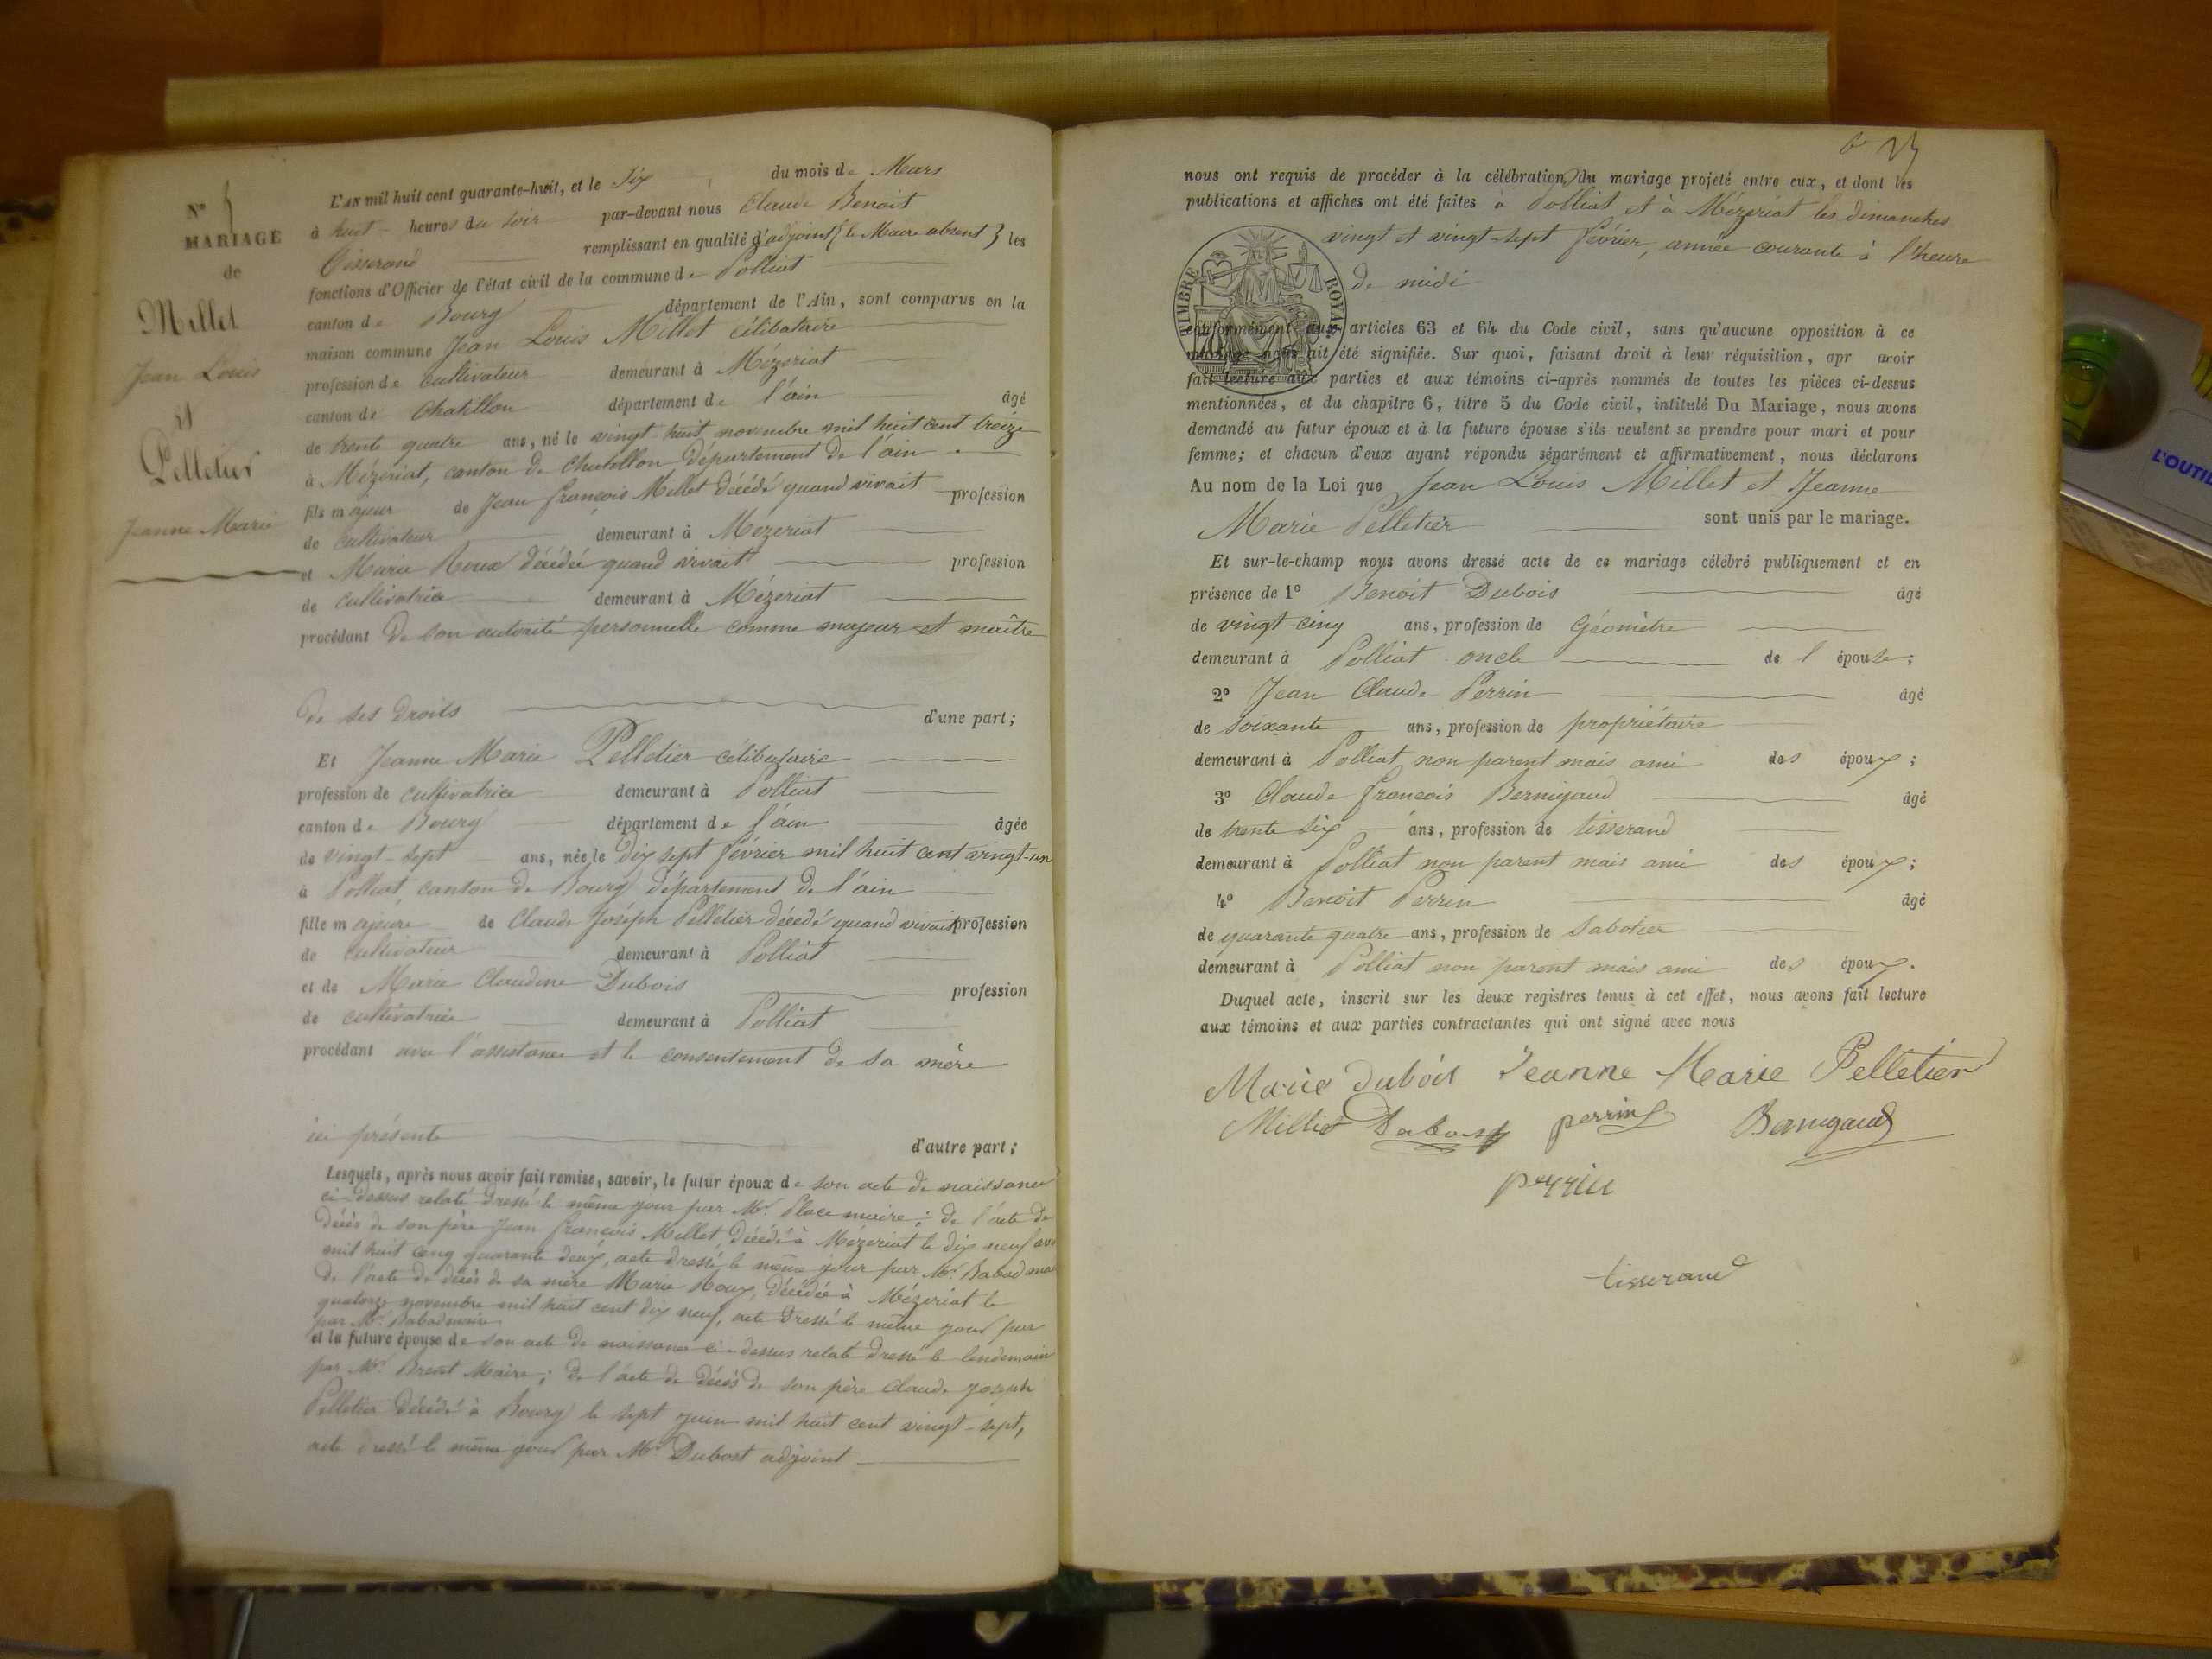 N° 5
MARIAGE
de
Millet
Jean Louis
et
Pelletier
Jeanne Marie
L'AN mil huit cent quarante-huit, et le six du mois de Mars
à huit heures du soir par-devant nous Claude Benoit
Tisserand remplissant en qualité d'adjoint (le Maire absent) les
fonctions d'Officier de l'état civil de la commune de Polliat
canton de Bourg département de l'Ain, sont comparus en la
maison commune Jean Louis Millet célibataire
profession de cultivateur demeurant à Mézeriat
canton de Chatillon département de l'ain âgé
de trente quatre ans, né le vingt huit novembre mil huit cent treize
à Mézériat, canton de Chatillon département de l'ain
fils majeur de Jean françois Millet décédé quand vivait profession
de cultivateur demeurant à Mézeriat
et Marie Roux décédée quand vivait profession
de cultivatrice demeurant à Mézeriat
procédant de son autorité personnelle comme majeur et maître
de ses droits d'une part;
Et Jeanne Marie Pelletier célibataire
profession de cultivatrice demeurant à Polliat
canton de Bourg département de l'ain âgée
de vingt-sept ans, née le dix sept février mil huit cent vingt-un
à Polliat, canton de Bourg département de l'ain
fille majeure de Claude Joseph Pelletier décédé quand vivait profession
de cultivateur demeurant à Polliat
et de Marie Claudine Dubois profession
de cultivatrice demeurant à Polliat
procédant avec l'assistance et le consentement de sa mère
ici présente d'autre part;
Lesquels, après nous avoir fait remise, savoir, le futur époux de son acte de naissance
ci-dessus relaté dressé le même jour par Mr. Place maire; de l'acte de
décès de son père Jean françois Millet, décédé à Mézeriat le dix neuf
mil huit cent quarante deux, acte dressé le même jour par Mr. Babad
de l'acte de décès de sa mère Marie Roux, décédée à Mézeriat le
quatorze novembre mil huit cent dix neuf, acte dressé le même jour par
par Mr. Babad maire
et la future épouse de son acte de naissance ci-dessus relaté dressé le lendemain
par Mr. Maire; de l'acte de décès de son père Claude Joseph
Pelletier décédé à Bourg le sept juin mil huit cent vingt-sept,
acte dressé le même jour par Mr Dubost adjoint
nous ont requis de procéder à la célébration du mariage projeté entre eux, et dont les
publications et affiches ont été faites à Polliat et à Mézeriat les dimanches
vingt et vingt-sept février, année courante à l'heure
de midi
TIMBRE ROYAL
conformément aux articles 63 et 64 du Code civil, sans qu'aucune opposition à ce
mariage nous ait été signifiée. Sur quoi, faisant droit à leur réquisition, apr avoir
fait lecture aux parties et aux témoins ci-après nommés de toutes les pièces ci-dessus
mentionnées, et du chapitre 6, titre 5 du Code civil, intitulé Du Mariage, nous avons
demandé au futur époux et à la future épouse s'ils veulent se prendre pour mari et pour
femme; et chacun d'eux ayant répondu séparément et affirmativement, nous déclarons
Au nom de la Loi que Jean Louis Millet et Jeanne
Marie Pelletier sont unis par le mariage.
Et sur-le-champ nous avons dressé acte de ce mariage célébré publiquement et en
présence de 1° Benoit Dubois âgé
de vingt-cinq ans, profession de Géomètre
demeurant à Polliat oncle de l épouse;
2° Jean Claude Perrin âgé
de soixante ans, profession de propriétaire
demeurant à Polliat non parent mais ami des époux;
3° Claude françois Bernigaud âgé
de trente six ans, profession de tisserand
demeurant à Polliat non parent mais ami des époux;
4° Benoit Perrin âgé
de quarante quatre ans, profession de Sabotier
demeurant à Polliat non parent mais ami des époux.
Duquel acte, inscrit sur les deux registres tenus à cet effet, nous avons fait lecture
aux témoins et aux parties contractantes qui ont signé avec nous
Marie dubois Jeanne Marie Pelletier
Millet Dubois perrin Bernigaud
perrin
tisserand
L'OUTIL